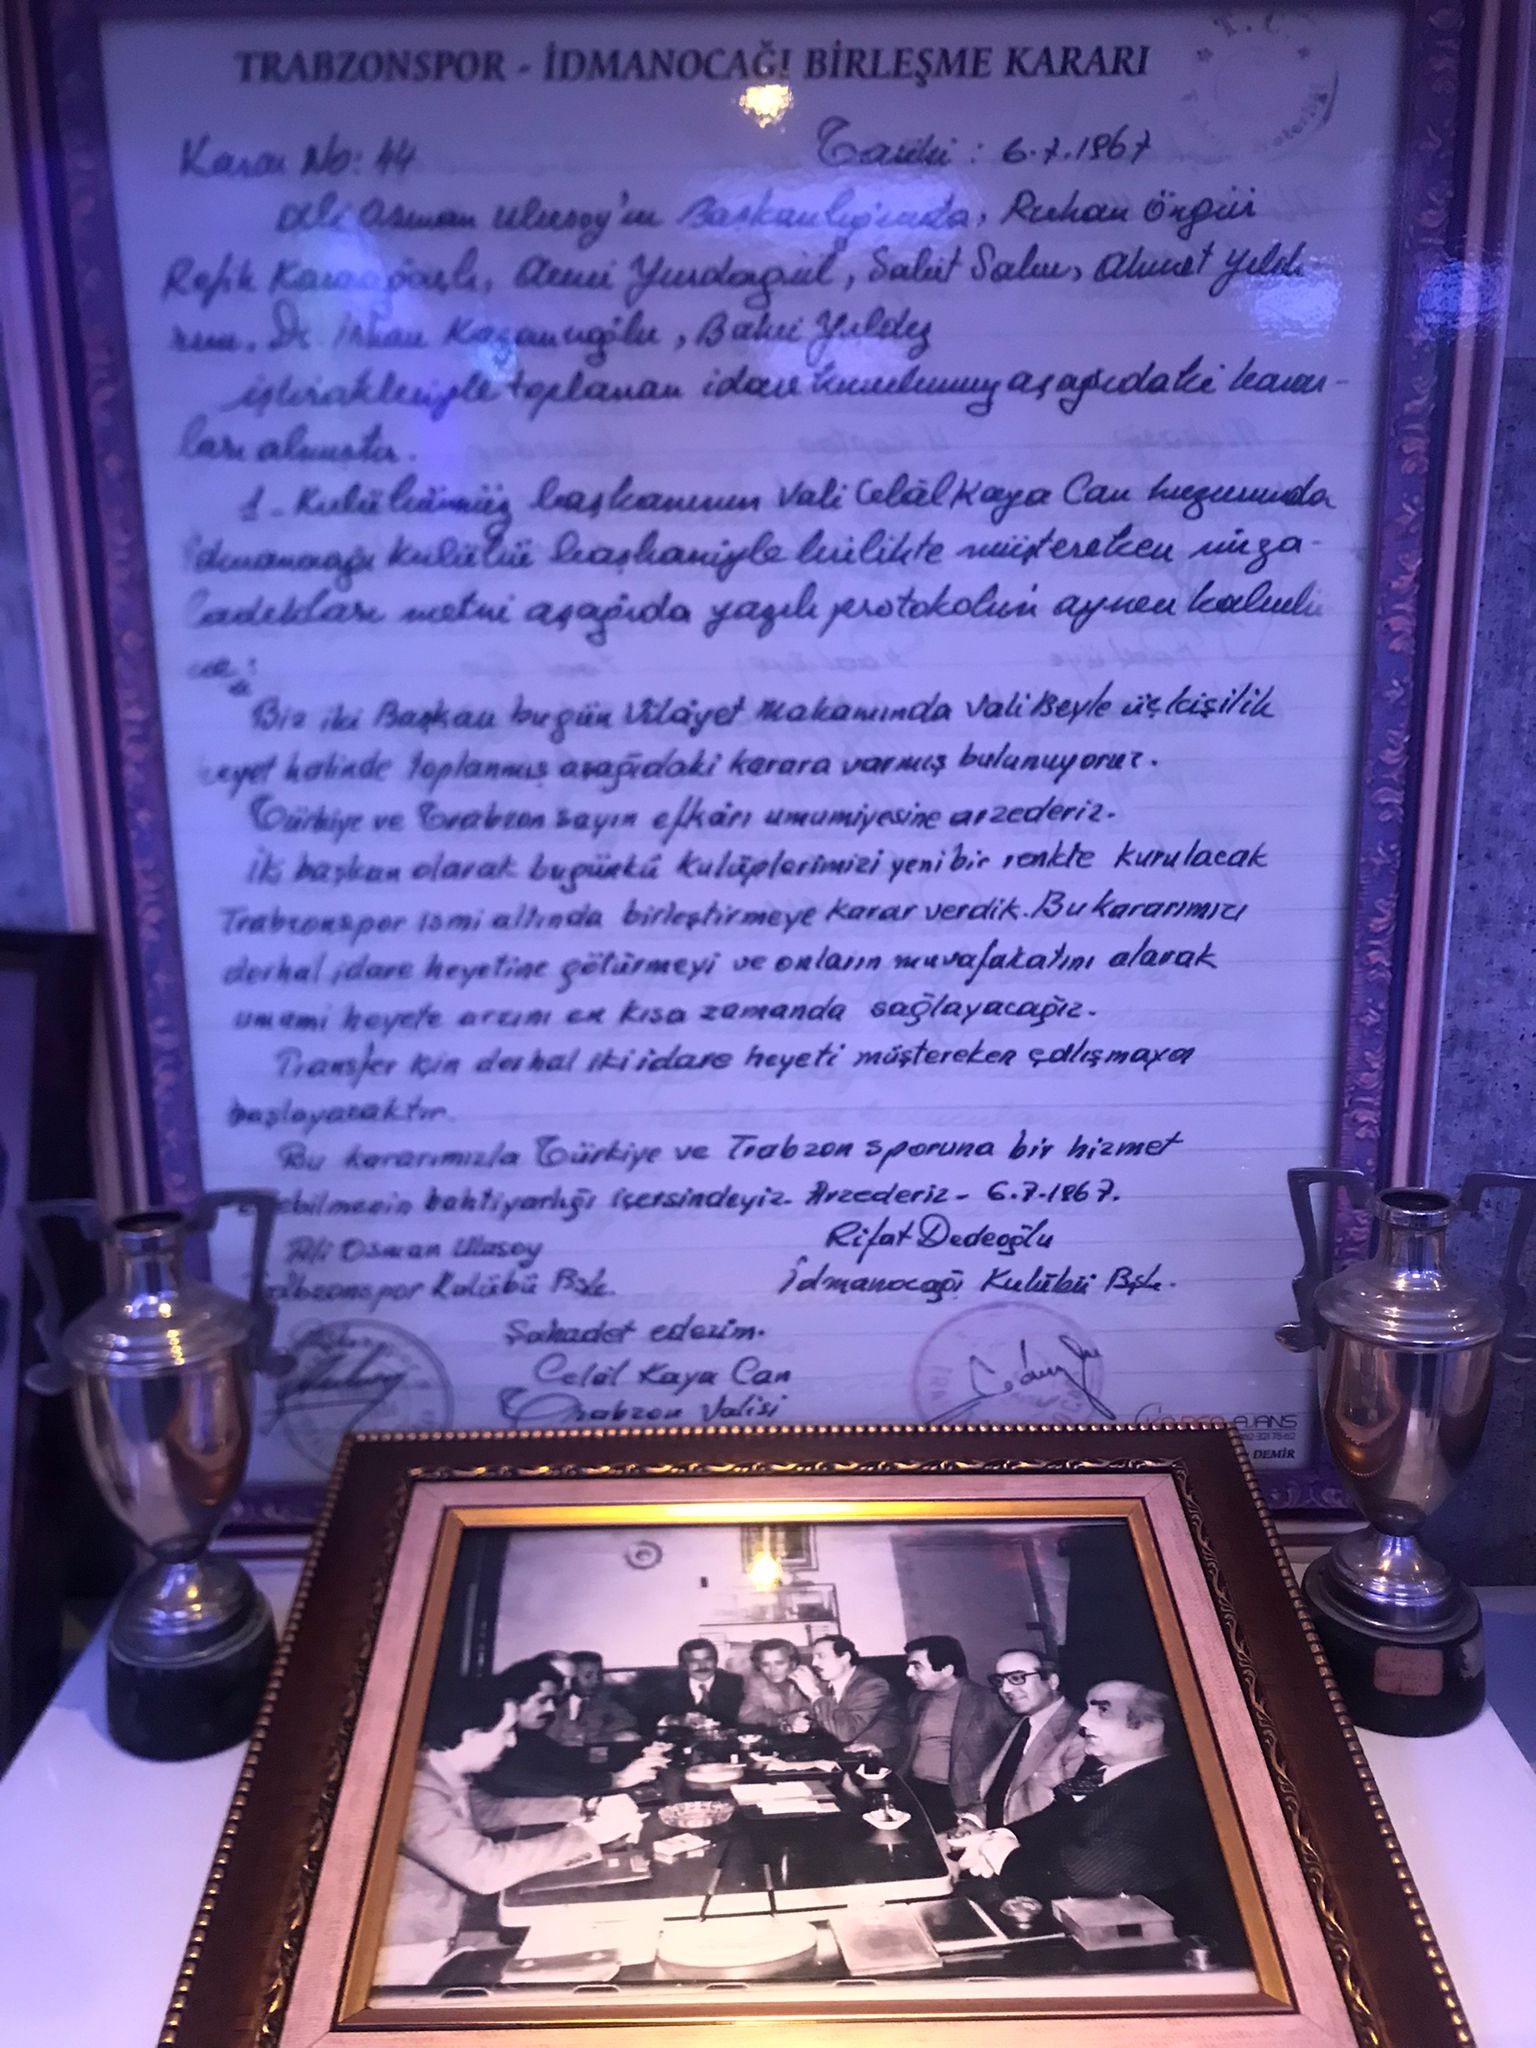 TRABZONSPOR - İDMANOCAĞI BİRLEŞME KARARI
T.C.
Karar No: 44 Tarihi : 6.7.1967
Ali Osman Ulusoy'un Başkanlığında, Ruhan Öngür
Refik Karaağaçlı, Yurdagül, Sabit Sabır, Ahmet Yıldı
rım, Dr. Kazancıoğlu, Bahri Yıldız
iştirakleriyle toplanan idare kurulumuz aşağıdaki karar-
ları almıştır.
1- Kulübümüz başkanının Vali Celâl Kaya Can huzurunda
İdmanocağı Kulübü başkaniyle birlikte müştereken imza-
ladıkları metni aşağıda yazılı protokolün aynen kabulü
ne:
Biz iki Başkan bugün Vilâyet Makamında Vali Beyle üç kişilik
eyet halinde toplanmış aşağıdaki karara varmış bulunuyoruz.
Türkiye ve Trabzon sayın efkârı umumiyesine arzederiz.
İki başkan olarak bugünkü kulüplerimizi yeni bir renkte kurulacak
Trabzonspor ismi altında birleştirmeye karar verdik. Bu kararımızı
derhal idare heyetine götürmeyi ve onların muvafakatını alarak
umumi heyete arzını en kısa zamanda sağlayacağız.
Transfer için derhal iki idare heyeti müştereken çalışmaya
başlayacaktır.
Bu kararımızla Türkiye ve Trabzon sporuna bir hizmet
edebilmenin bahtiyarlığı içersindeyiz. Arzederiz - 6.7.1967.
Ali Osman Ulusoy Rifat Dedeoğlu
Trabzonspor Kulübü Bşk. İdmanocağı Kulübü Bşk.
Şahadet ederim.
Celâl Kaya Can
Trabzon Valisi
AJANS
DEMİR